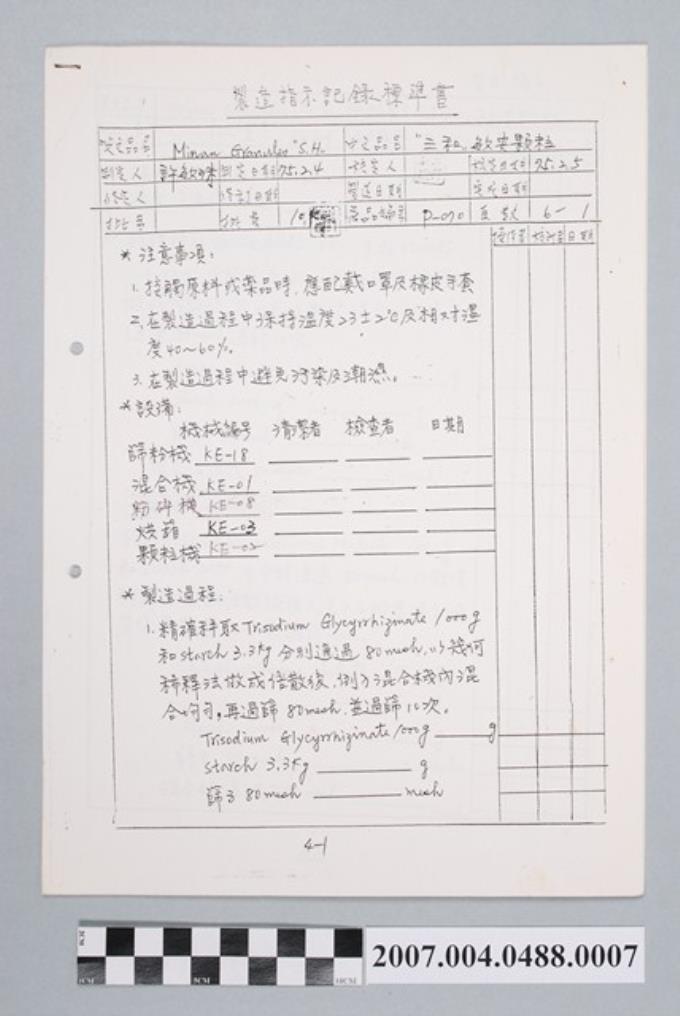 製造指示記錄標準書
英文品名 Minan Granules "S.H. 中文品名 "三和"敏安顆粒
制定人 許敏珠 制定日期 75.2.4 核定人 核定日期 75.2.5
修定人 修訂日期 製造日期 完成日期
批量 批號 產品編號 P-070 頁數 6-1
操作者 核對者 日期
* 注意事項:
1. 接觸原料或藥品時,應配戴口罩及橡皮手套
2. 在製造過程中保持溫度23±2℃及相對濕
度40~60%。
3. 在製造過程中避免污染及潮濕。
* 設備:
機械編號 清潔者 檢查者 日期
篩粉機 KE-18
混合機 KE-01
粉碎機 KE-08
烘箱 KE-03
顆粒機 KE-02
* 製造過程:
1. 精確秤取Trisodium Glycyrrhizinate 1000g
和starch 3.3Kg 分別通過80mesh,以幾何
稀釋法做成倍散後,倒入混合機內混
合均勻,再過篩80mesh,並過篩10次。
Trisodium Glycyrrhizinate 1000g g
starch 3.3Kg g
篩 80mesh mesh
4-1
2007.004.0488.0007
0CM
5CM
10CM